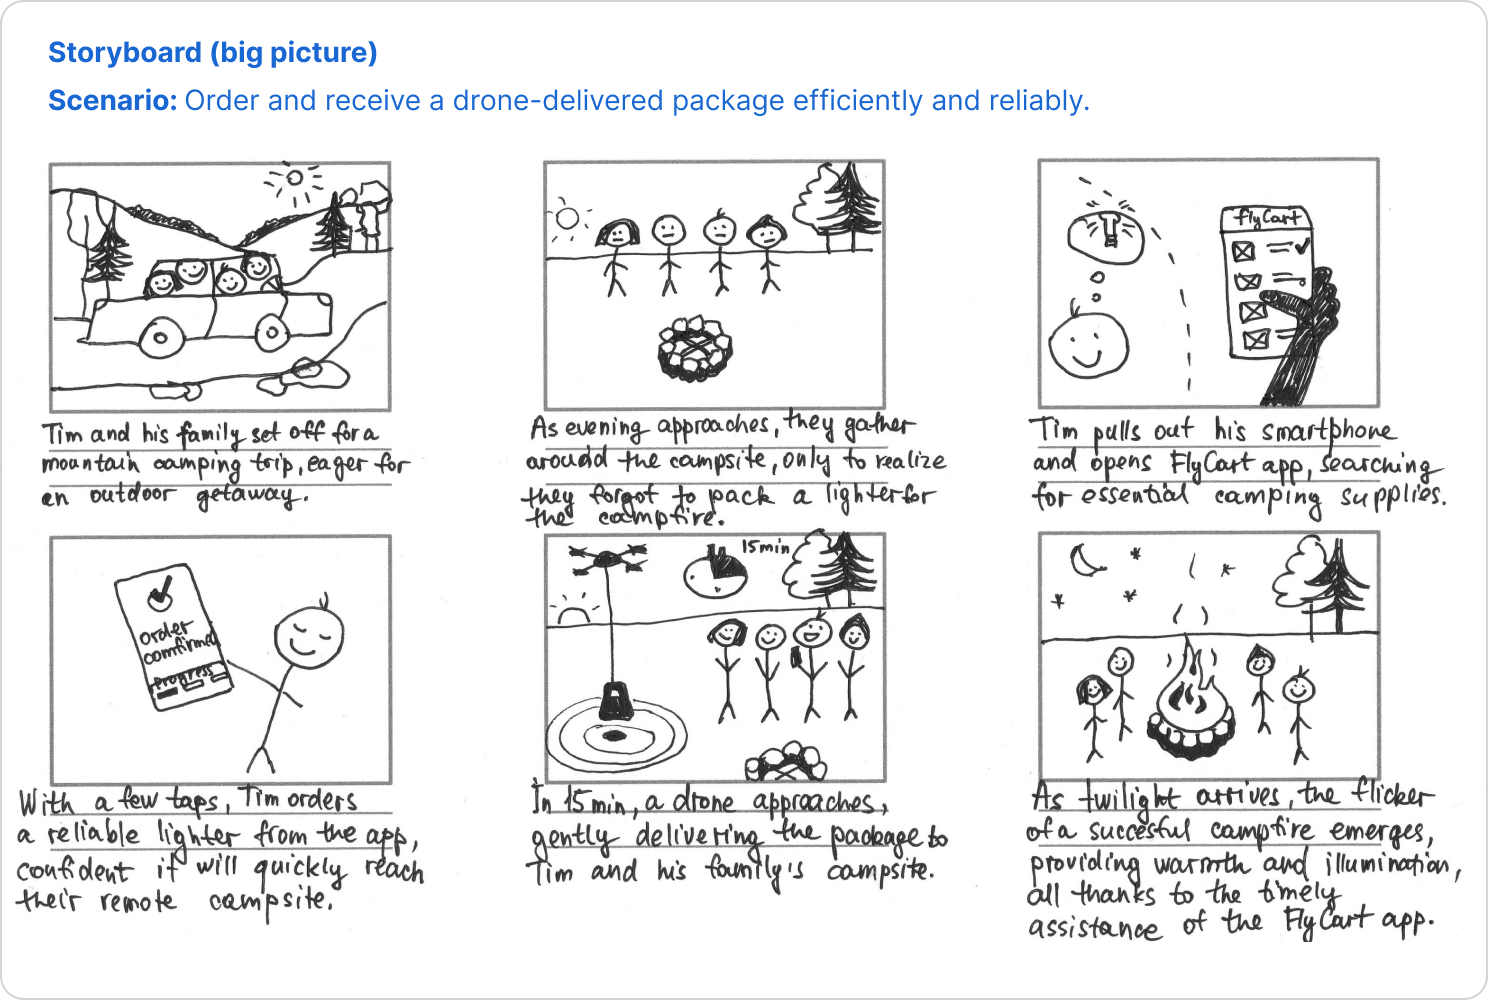 Storyboard (big picture)
Scenario: Order and receive a drone-delivered package efficiently and reliably.
Tim and his family set off for a
mountain camping trip, eager for
an outdoor getaway.
As evening approaches, they gather
around the campsite, only to realize
they forgot to pack a lighter for
the campfire.
FlyCart
Tim pulls out his smartphone
and opens FlyCart app, searching
for essential camping supplies.
order
comfirmed
Progress
With a few taps, Tim orders
a reliable lighter from the app,
confident it will quickly reach
their remote campsite.
15 min
In 15 min, a drone approaches,
gently delivering the package to
Tim and his family's campsite.
As twilight arrives, the flicker
of a succesful campfire emerges,
providing warmth and illumination,
all thanks to the timely
assistance of the FlyCart app.